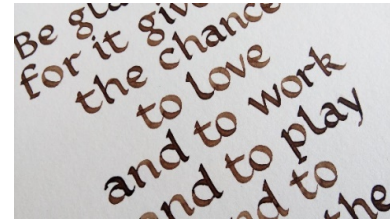 Be
for it
the chance
to love
and to work
and to play
to
the